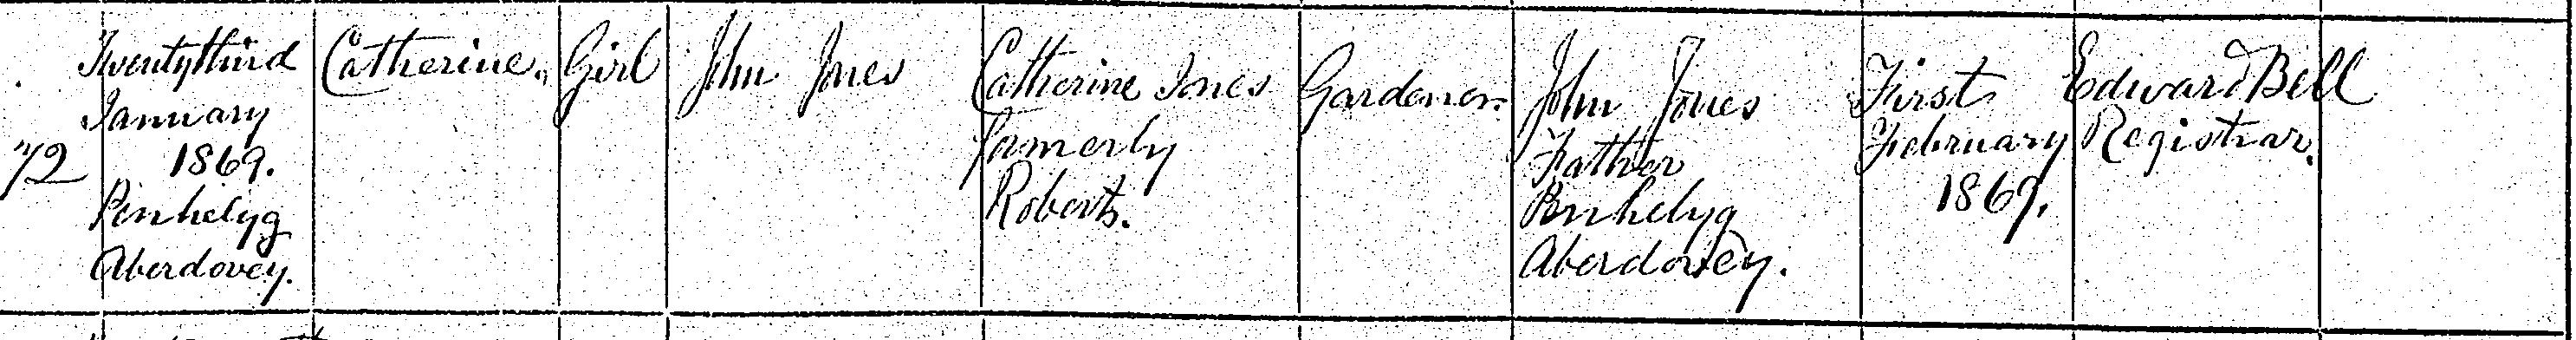 72
Twenty third
January
1869.
Penhelyg
Aberdovey.
Catherine
Girl
John Jones
Catherine Jones
formerly
Roberts.
Gardener.
John Jones
Father
Penhelyg
Aberdovey.
First
February
1869.
Edward Bell
Registrar.